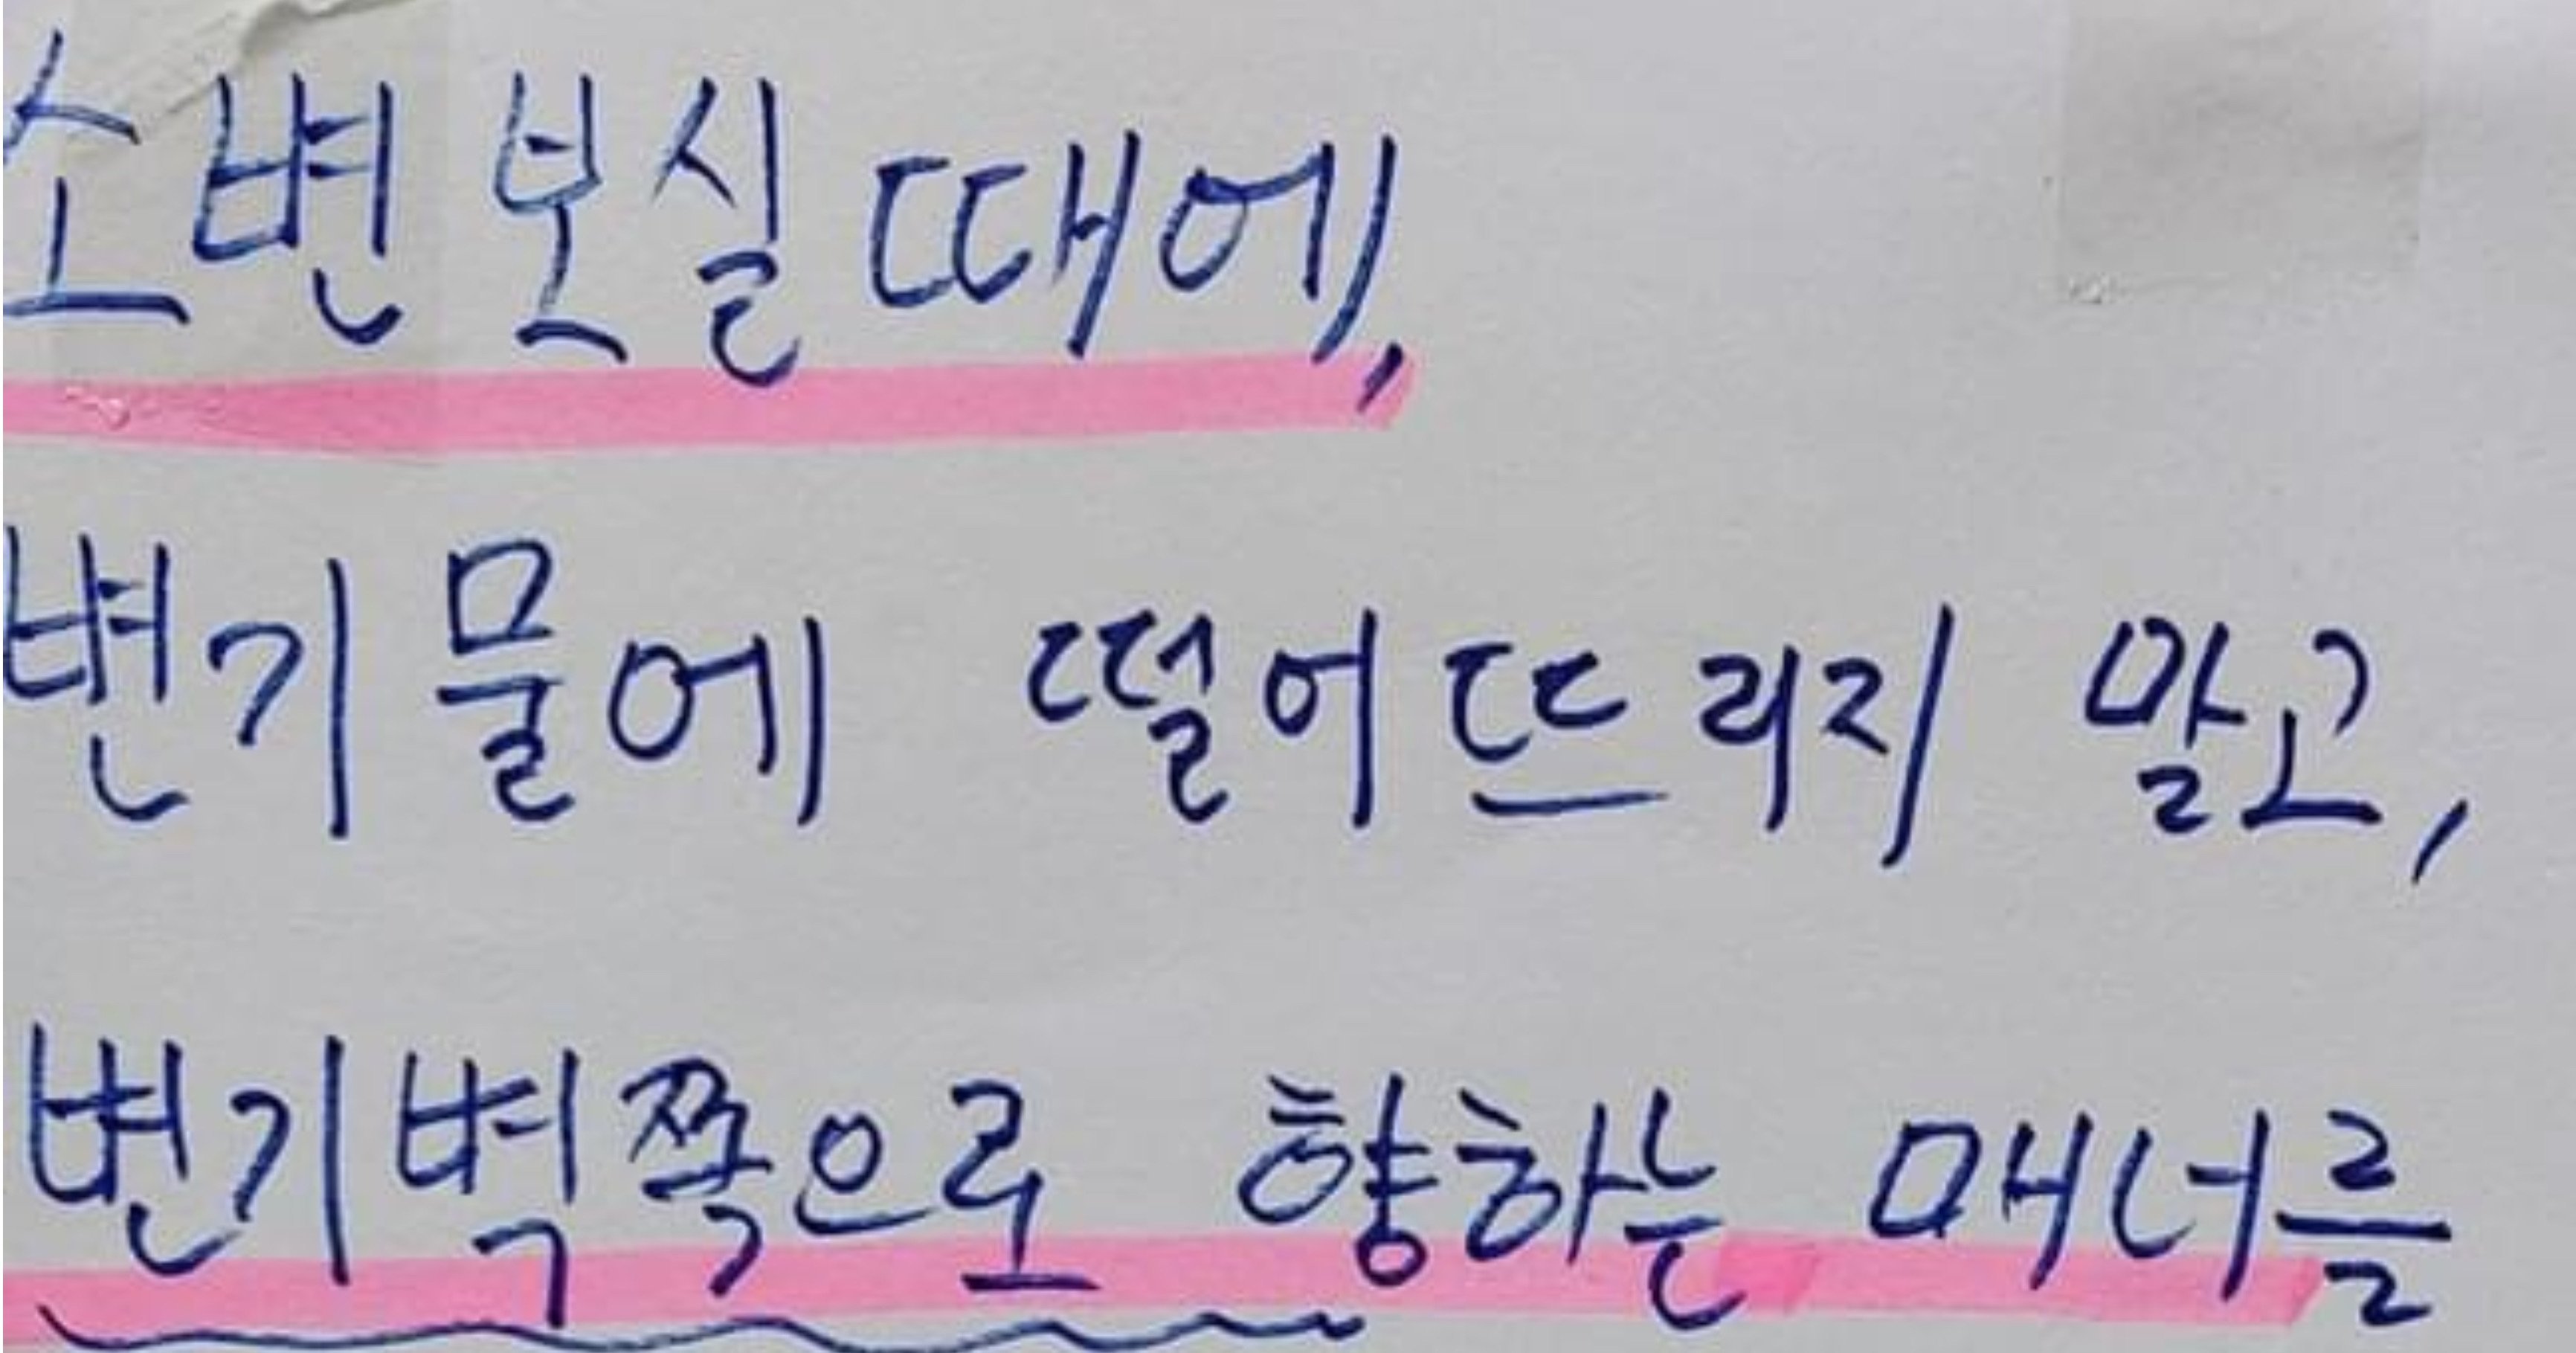 소변 보실 때에,
변기물에 떨어뜨리지 말고,
변기벽쪽으로 향하는 매너를